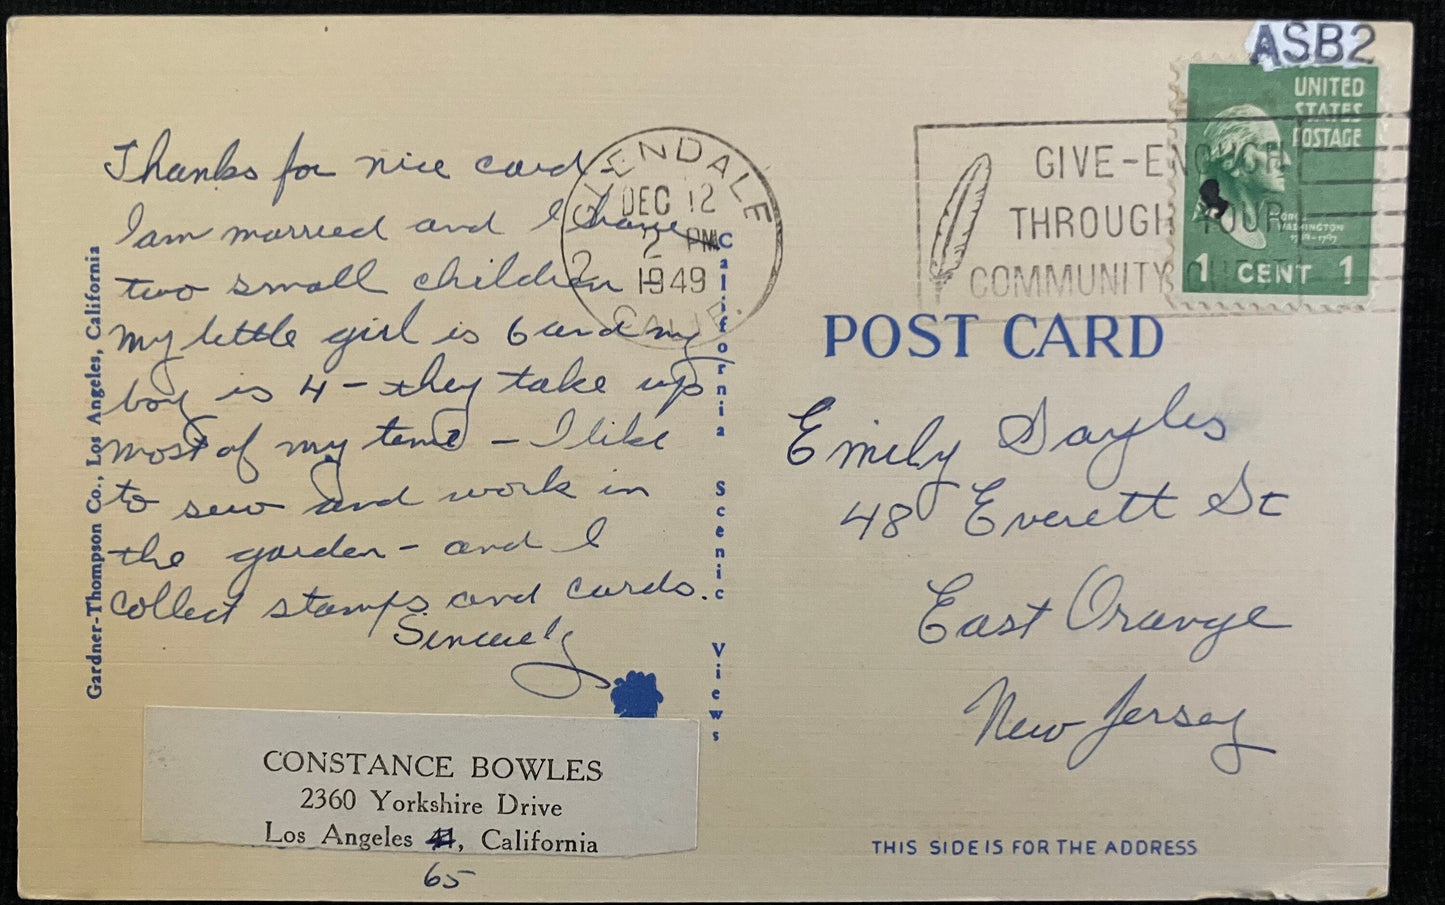 Thanks for nice card
I am married and I have
two small children
my little girl is 6 and my
boy is 4 - they take up
most of my time - I like
to sew and work in
the garden - and I
collect stamps and cards.
Sincerely
CONSTANCE BOWLES
2360 Yorkshire Drive
Los Angeles 41, California
65
Gardner-Thompson Co., Los Angeles, California
California Scenic Views
GLENDALE
DEC 12
2 PM
1949
CALIF.
2
GIVE-ENOUGH
THROUGH YOUR
COMMUNITY
ASB2
UNITED
STATES
POSTAGE
WASHINGTON
1 CENT 1
POST CARD
Emily Sayles
48 Everett St
East Orange
New Jersey
THIS SIDE IS FOR THE ADDRESS